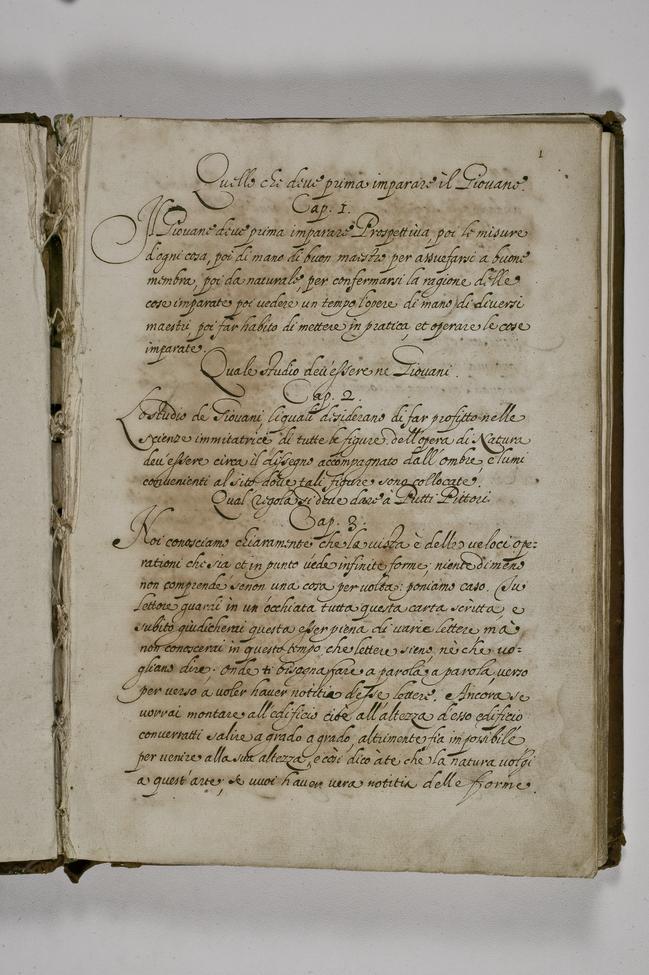 1
Quello che deve prima imparare il Giovane.
Cap. 1.
Il Giovane deve prima imparare Prospettiva, poi le misure
d'ogni cosa, poi di mano di buon maestro per assuefarsi a buone
membra, poi da naturale, per confermarsi la ragione delle
cose imparate poi vedere un tempo l'opere di mano di diversi
maestri, poi far habito di mettere in pratica, et operare le cose
imparate.
Quale studio dev'essere ne Giovani.
Cap. 2.
Lo studio de Giovani, li quali disiderano di far profitto nelle
scienze immitatrice di tutte le figure dell'opera di Natura
dev'essere circa il dissegno accompagnato dall'ombre, e lumi
convenienti al sito dove tali figure sono collocate.
Qual regola si deve dare à Putti Pittori
Cap. 3.
Noi conosciamo chiaramente che la vista è delle veloci ope:
rationi che sia et in punto vede infinite forme, niente dimeno
non comprende se non una cosa per volta: poniamo caso. Tu
lettore guarai in un'occhiata tutta questa carta scritta, e
subito giudicherai questa esser piena di varie lettere mà
non conoscerai in questo tempo, che lettere siene, nè che vo-
gliano dire. Onde ti bisogna fare a parola, a parola, verso
per verso a voler haver notitia d'esse lettere. Ancora se
vorrai montare all'edificio cibe all'altezza d'esso edificio
converratti salire a grado a grado, altrimente fia impossibile
per venire alla sua altezza, e così dico à te che la natura volgi
a quest'arte, se vuoi haver vera notitia delle forme.